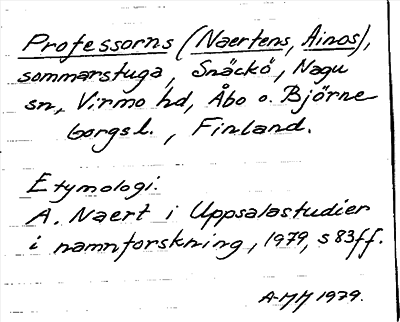 Professorns (Naertens, Ainos),
sommarstuga, Snäckö, Nagu
sn, Virmo hd, Åbo o. Björne
borgs l., Finland.
Etymologi:
A. Naert i Uppsalastudier
i namnforskning, 1979, s 83ff.
A-MM 1979.